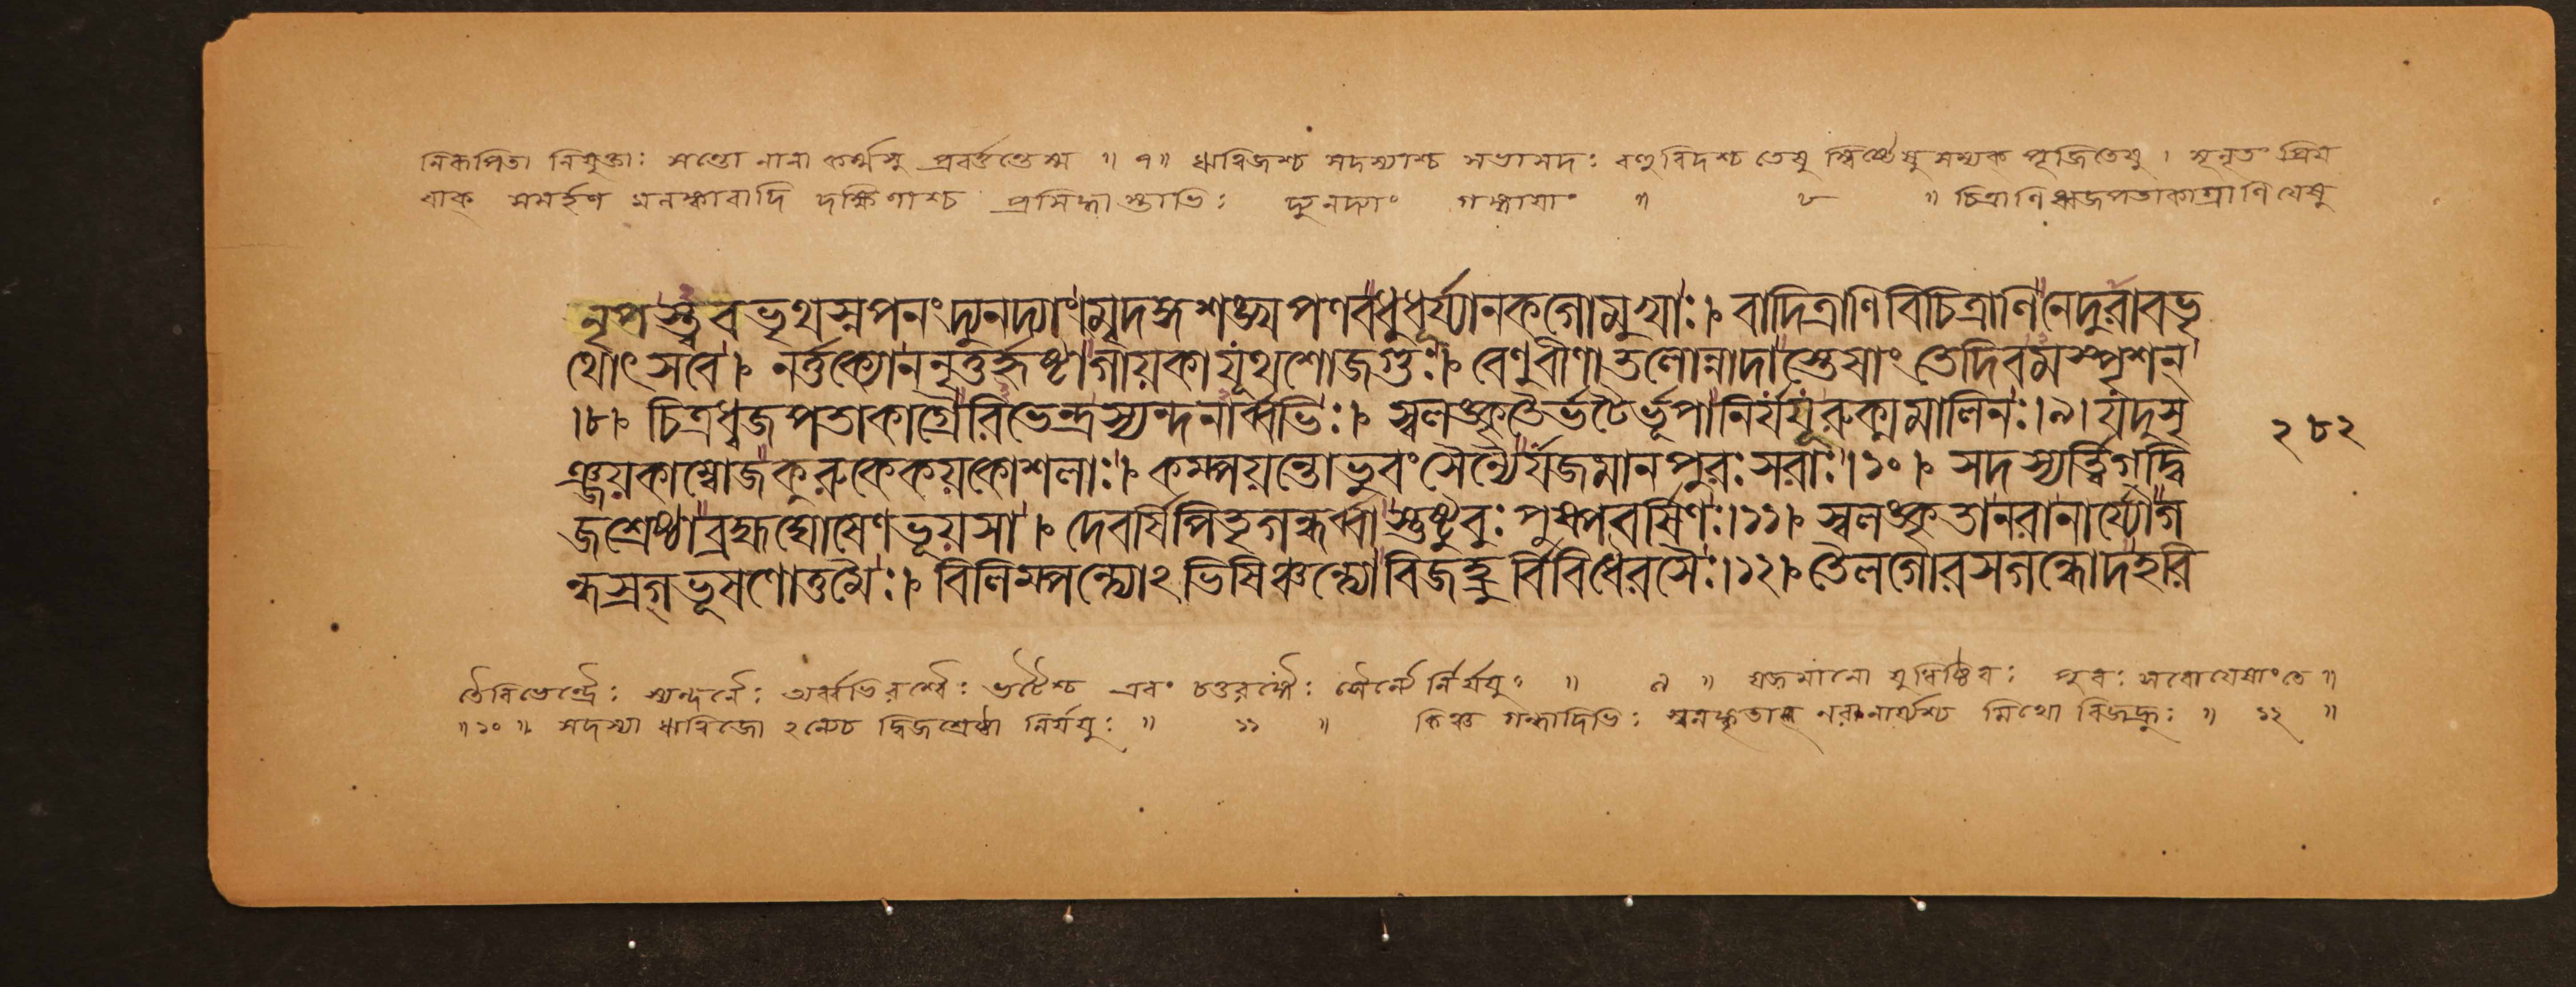 নিরূপিতা নিযুক্তাঃ সন্তো নানা কর্ম্মসু প্রবর্ত্তন্তেস্ম ॥ ৭॥ ঋত্বিজশ্চ সদস্যাশ্চ সভাসদঃ বহুবিদশ্চ তেষু স্বিষ্টেষু সম্যক্ পূজিতেষু । সূনৃতং প্রিয়
বাক্ সমর্হণ মলঙ্কারাদি দক্ষিণাশ্চ প্রসিদ্ধাস্তাভিঃ দ্যুনদ্যাং গঙ্গায়াং ॥ ৮ ॥ চিত্রাণি ধ্বজপতাকাগ্রাণি যেষু
নৃপস্ত্ববভৃথস্নপনং দ্যুনদ্যাং। মৃদঙ্গশঙ্খপণবধুধূর্য্যানকগোমুখাঃ। বাদিত্রাণিবিচিত্রাণিনেদুরাবভৃ
থোৎসবে। নর্ত্তক্যোননৃতুর্হৃষ্টাগায়কাযূথশোজগুঃ। বেণুবীণাতলোন্নাদাস্তেষাং তেদিবমস্পৃশন্
।৮। চিত্রধ্বজপতাকাগ্রৈরিভেন্দ্রস্যন্দনার্ব্বভিঃ। স্বলঙ্কৃতৈর্ভটৈর্ভূপানির্যযূরুক্মমালিনঃ।৯। যদুসৃ
ঞ্জয়কাম্বোজকুরুকেকয়কোশলাঃ। কম্পয়ন্তোভুবংসৈন্যৈর্যজমানপুরঃসরাঃ।১০। সদস্যর্ত্ত্বিগ্দ্বি
জশ্রেষ্ঠাব্রহ্মঘোষেণভূয়সা। দেবর্ষিপিতৃগন্ধর্ব্বাস্তুষ্টুবুঃ পুষ্পবর্ষিণঃ।১১। স্বলঙ্কৃতানরানার্য্যোগ
ন্ধস্রগ্ভূষণোত্তমৈঃ। বিলিম্পন্ত্যোঽভিষিঞ্চন্ত্যোবিজহ্রুর্বিবিধৈরসৈঃ।১২। তৈলগোরসগন্ধোদহরি
২৮২
তৈরিভেন্দ্রৈঃ স্যন্দনৈঃ অর্ব্বভিরশ্বৈঃ ভটৈশ্চ এবং চতুরঙ্গৈঃ সৈন্যৈর্নির্যযুঃ ॥ ৯ ॥ যজমানো যুধিষ্ঠিরঃ পুরঃসরোযেষাংতে ॥
॥১০॥ সদস্যা ঋত্বিজো ঽন্যেচ দ্বিজশ্রেষ্ঠা নির্যযুঃ ॥ ১১ ॥ কিঞ্চ গন্ধাদিভিঃ স্বলঙ্কৃতা নরানার্য্যশ্চ মিথো বিজহ্রুঃ ॥ ১২ ॥